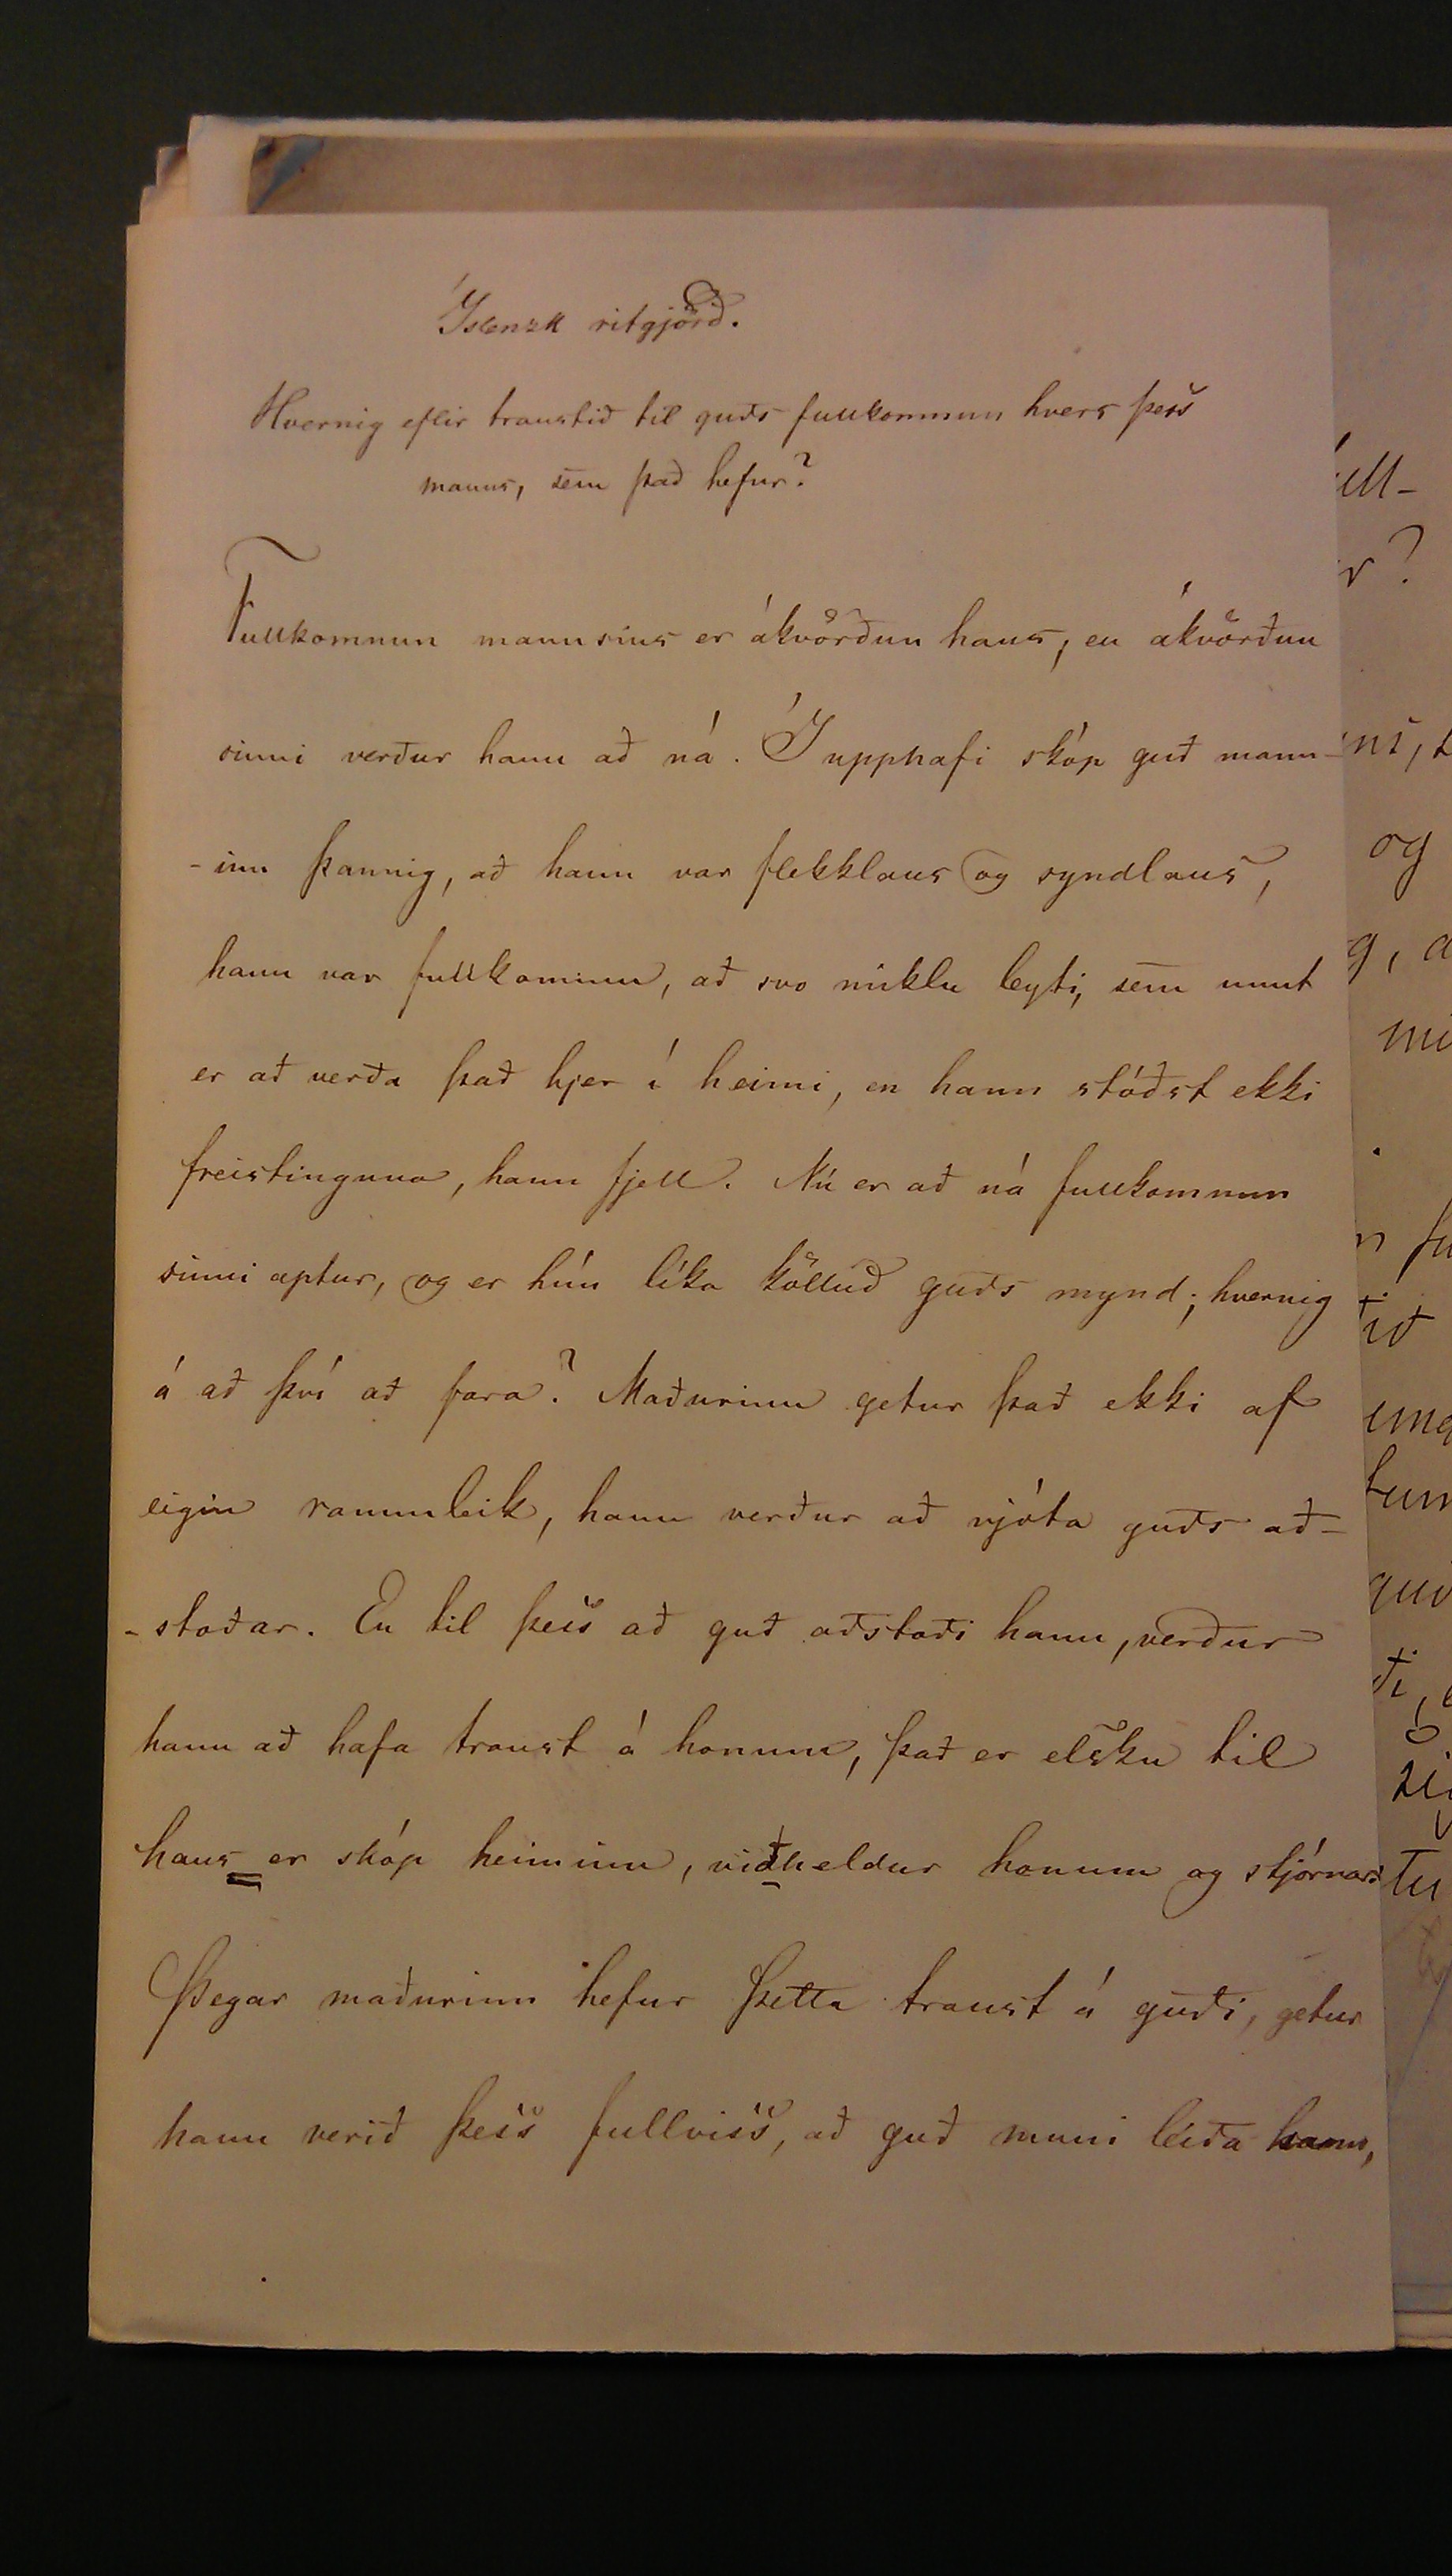 Íslenzk ritgjörð.
Hvernig eflir traustið til guðs fullkomnun hvers þess
manns, sem það hefur?
Fullkomnun mannsins er ákvörðun hans, en ákvörðun
sinni verður hann að ná. Í upphafi skóp guð mann-
-inn þannig, að hann var flekklaus og syndlaus,
hann var fullkominn, að svo miklu leyti, sem unnt
er að verða það hjer í heimi, en hann stóðst ekki
freistinguna, hann fjell. Nú er að ná fullkomnun
sinni aptur, og er hún líka kölluð guðs mynd; hvernig
á að því að fara? Maðurinn getur það ekki af
eigin rammleik, hann verður að njóta guðs að-
-stoðar. En til þess að guð aðstoði hann, verður
hann að hafa traust á honum, það er elsku til
hans er skóp heiminn, viðheldur honum og stjórnar.
Þegar maðurinn hefur þetta traust á guði, getur
hann verið þess fullviss, að guð muni leiða hann,